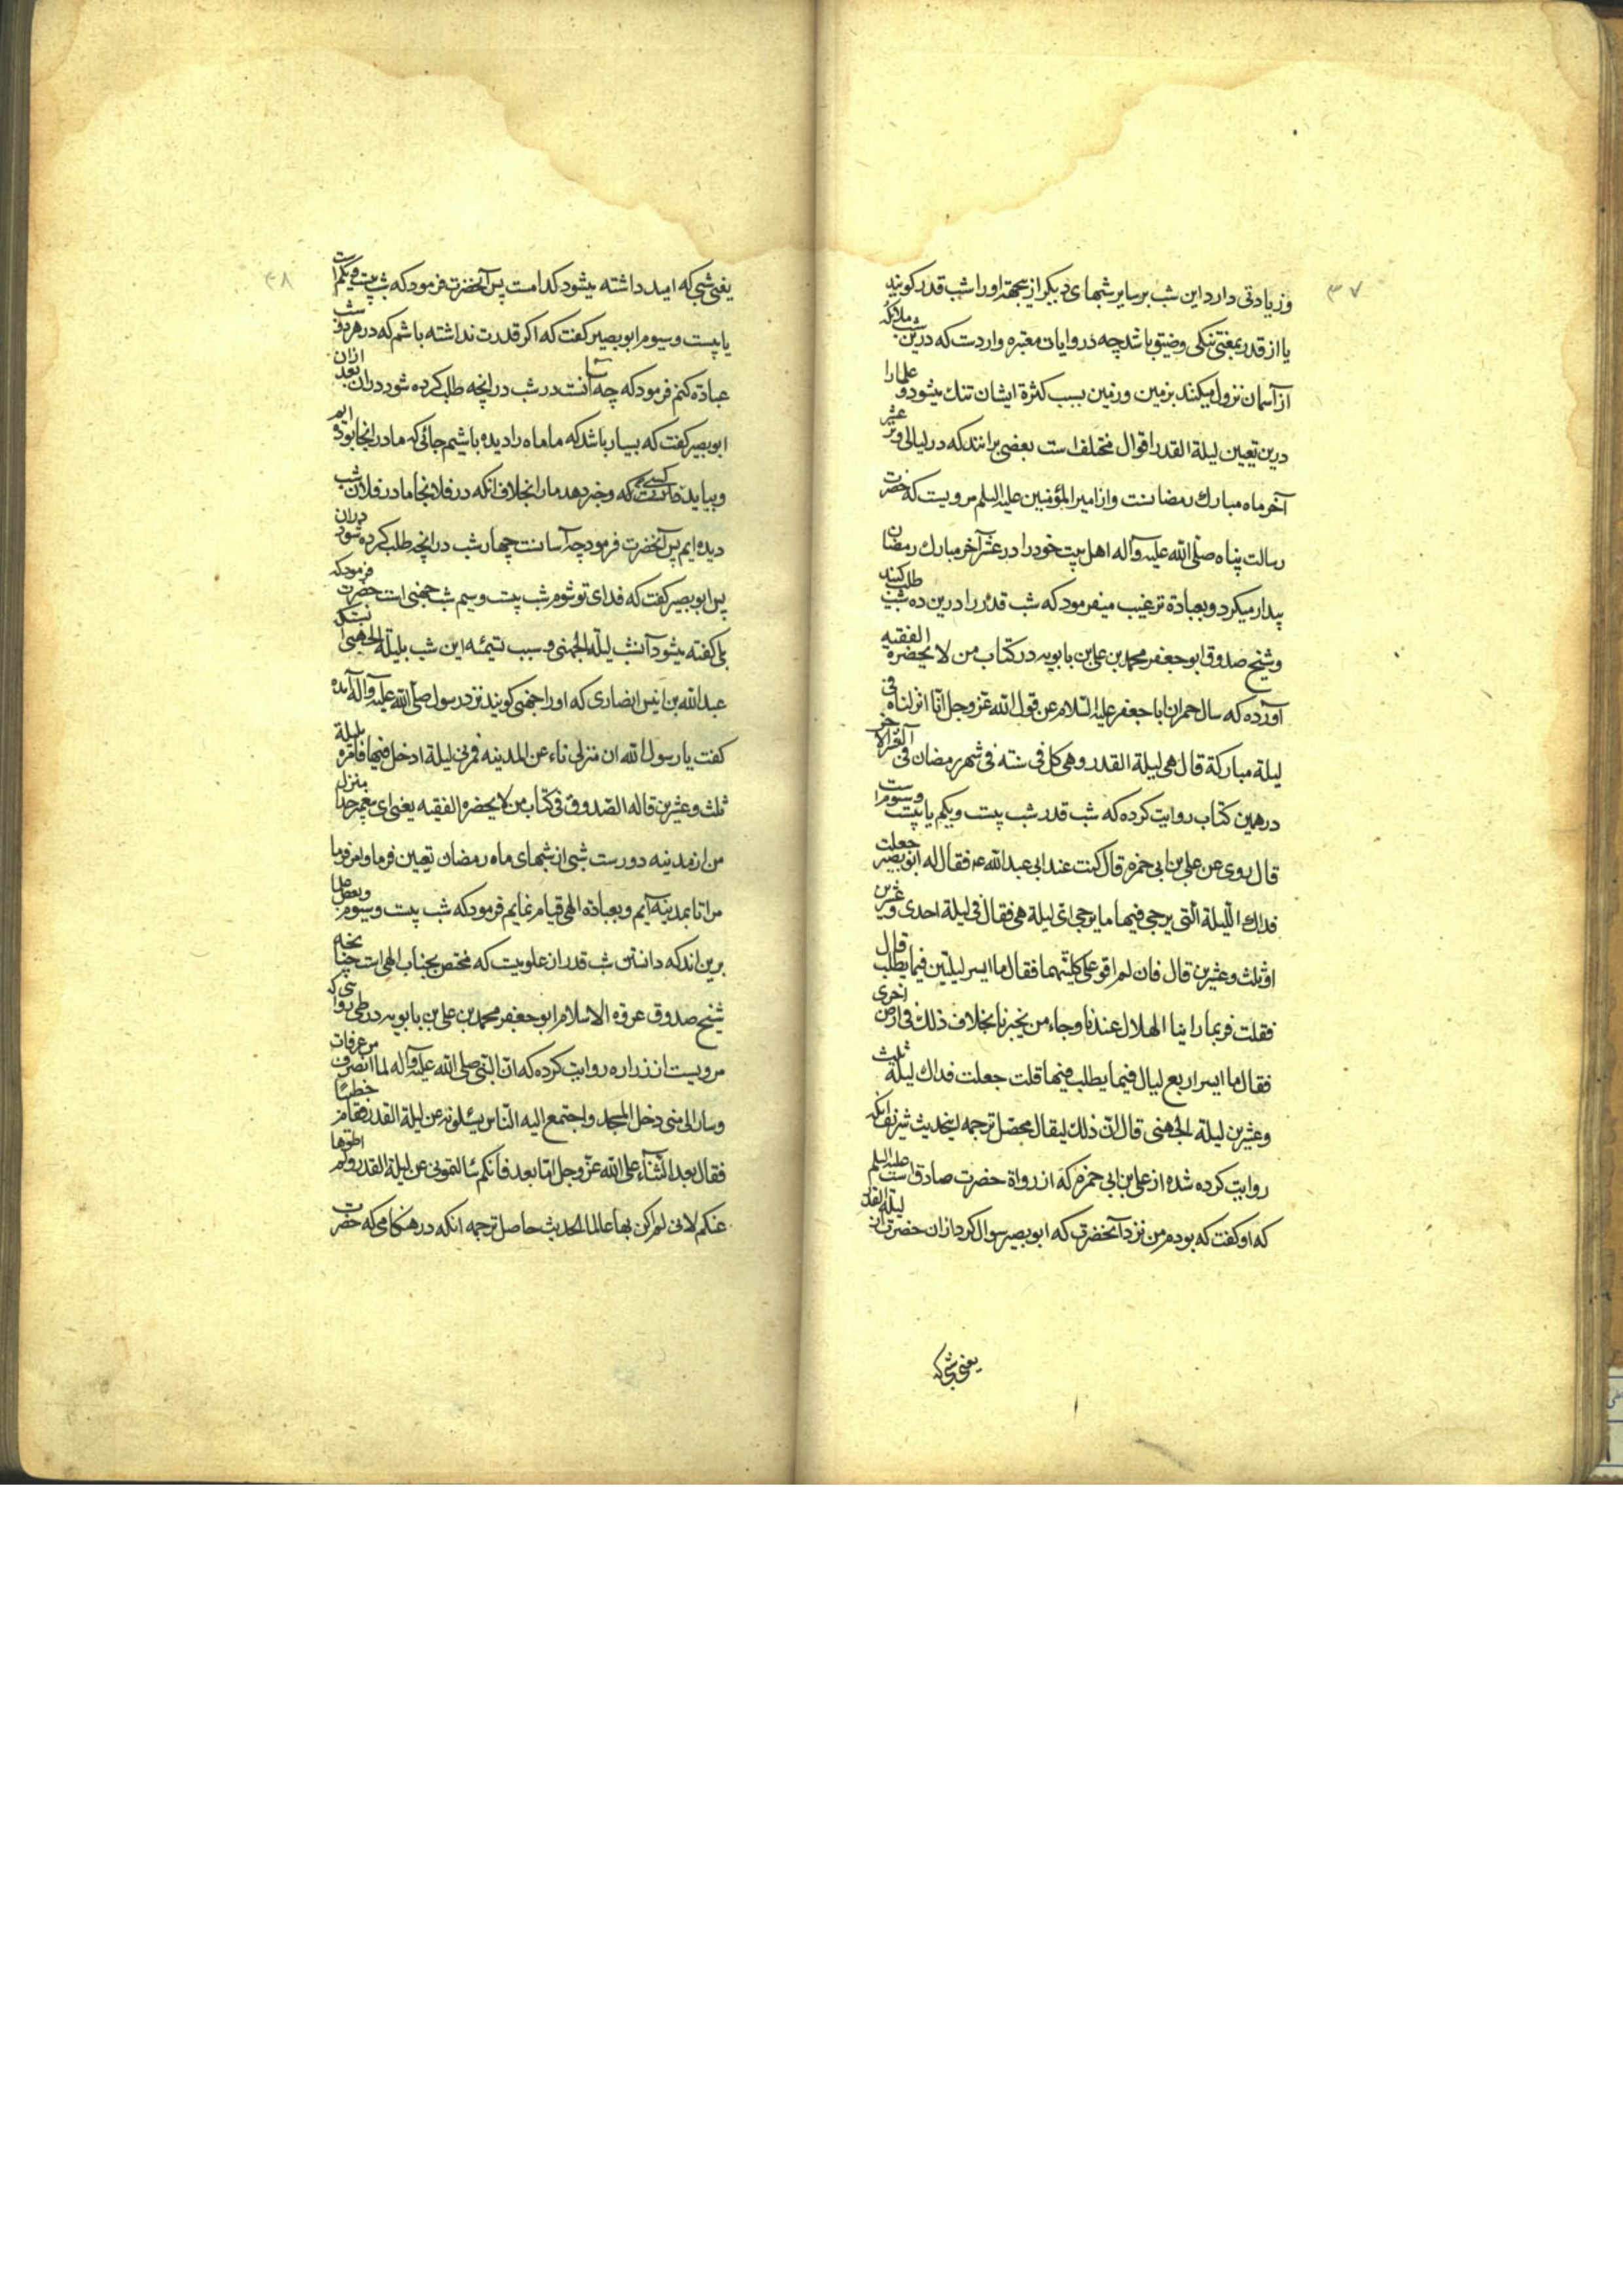 ۳۷
وزیادتی دارد این شب بر سایر شبهای دیگر ازینجهت اورا شب قدر کویند
یا از قدر بمعنی تنکی وضیق باشد چه در روایات معتبره واردست که درین شب ملائکه
از آسمان نزول میکنند بزمین وزمین بسبب کثرة ایشان تنك میشود و علما را
درین تعیین لیلة القدر اقوال مختلف است بعضی برانند که در لیالی وتر عشر
آخر ماه مبارك رمضانست واز امیر المؤمنین علیه السلم مرویست که حضرت
رسالت پناه صلی الله علیه وآله اهل بیت خود را در عشر آخر مبارك رمضان
بیدار میکرد وبعبادة ترغیب میفرمود که شب قدر را درین ده شب طلب کنند
وشیخ صدوق ابو جعفر محمد بن علی بن بابویه در کتاب من لا یحضره الفقیه
آورده که سال حمران ابا جعفر علیه السلام عن قول الله عز وجل انا انزلناه فی
لیلة مبارکة قال هی لیلة القدر وهی کل فی سنة فی شهر رمضان فی
در همین کتاب روایت کرده که شب قدر شب بیست ویکم یا بیست وسوم است
قال روی عن علی بن ابی حمزه قال کنت عند ابی عبد الله ع فقال له ابو بصیر جعلت
فداك اللیلة التی یرجی فیها ما یرجی ای لیلة هی فقال فی لیلة احدی وعشرین
او ثلث وعشرین قال فان لم اقو علی کلیتهما فقال ما ایسر لیلتین فیما یطلب قال
فقلت فربما راینا الهلال عندنا وجاء من یخبرنا بخلاف ذلك فی ارض اخری
فقال ما ایسر اربع لیال فیما یطلب فیها قلت جعلت فداك لیلة ثلث
وعشرین لیلة الجهنی قال ان ذلك لیقال محصل ترجمه اینحدیث شریف آنکه
روایت کرده شده از علی بن ابی حمزه که از رواة حضرت صادق است علیه السلم
که او کفت که بودم من نزد آنحضرت که ابو بصیر سوال کرد ازان حضرت از لیلة القدر
یعنی شبی که
۳۸
یعنی شبی که امید داشته میشود کدامست پس آنحضرت فرمود که شب بیست ویکم است
یا بیست وسیوم ابو بصیر کفت که اکر قدرت نداشته باشم که در هر دو شب
عبادة کنم فرمود که چه آسانست در شب درانچه طلب کرده شود دران بعد ازان
ابو بصیر کفت که بسیار باشد که ما ماه را دیده باشیم جائی که ما در انجا بوده ایم
وبیاید کسی که وخبر دهد مارا بخلاف انکه در فلانجا ما در فلان شب
دیده ایم پس آنحضرت فرمود چه آسانست چهار شب درانچه طلب کرده شود دران
پس ابو بصیر کفت که فدای تو شوم شب بیست وسیم شب جهنی است حضرت فرمود که
بلی کفته میشود آنشب لیلة الجهنی وسبب تسمیه این شب بلیلة الجهنی
عبد الله بن انیس انصاری که او را جهنی کویند نزد رسول صلی الله علیه وآله آمده
کفت یا رسول الله ان منزلی ناء عن المدینه فمرنی لیلة ادخل فیها فامره بلیلة
ثلث وعشرین قاله الصدوق فی کتاب من لا یحضره الفقیه یعنی ای پیغمبر خدا منزل
من از مدینه دورست شبی از شبهای ماه رمضان تعیین فرما وامر فرما
مرا تا بمدینه آیم وبعبادة الهی قیام نمایم فرمود که شب بیست وسیوم وبعض علما
برین اند که دانستن شب قدر از علومیست که مختص بجناب الهی است چنانچه
شیخ صدوق عروة الاسلام ابو جعفر محمد بن علی بن بابویه در طی
مرویست از زراره روایت کرده که ان النبی صلی الله علیه وآله لما انصرف من عرفات
وسار الی منی دخل المسجد واجتمع الیه الناس یسئلونه عن لیلة القدر فقام خطیبا
فقال بعد الثناء علی الله عز وجل اما بعد فانکم سالتمونی عن لیلة القدر ولم اطوها
عنکم لانی لم اکن بها عالما الحدیث حاصل ترجمه انکه در هنکامی که حضرت